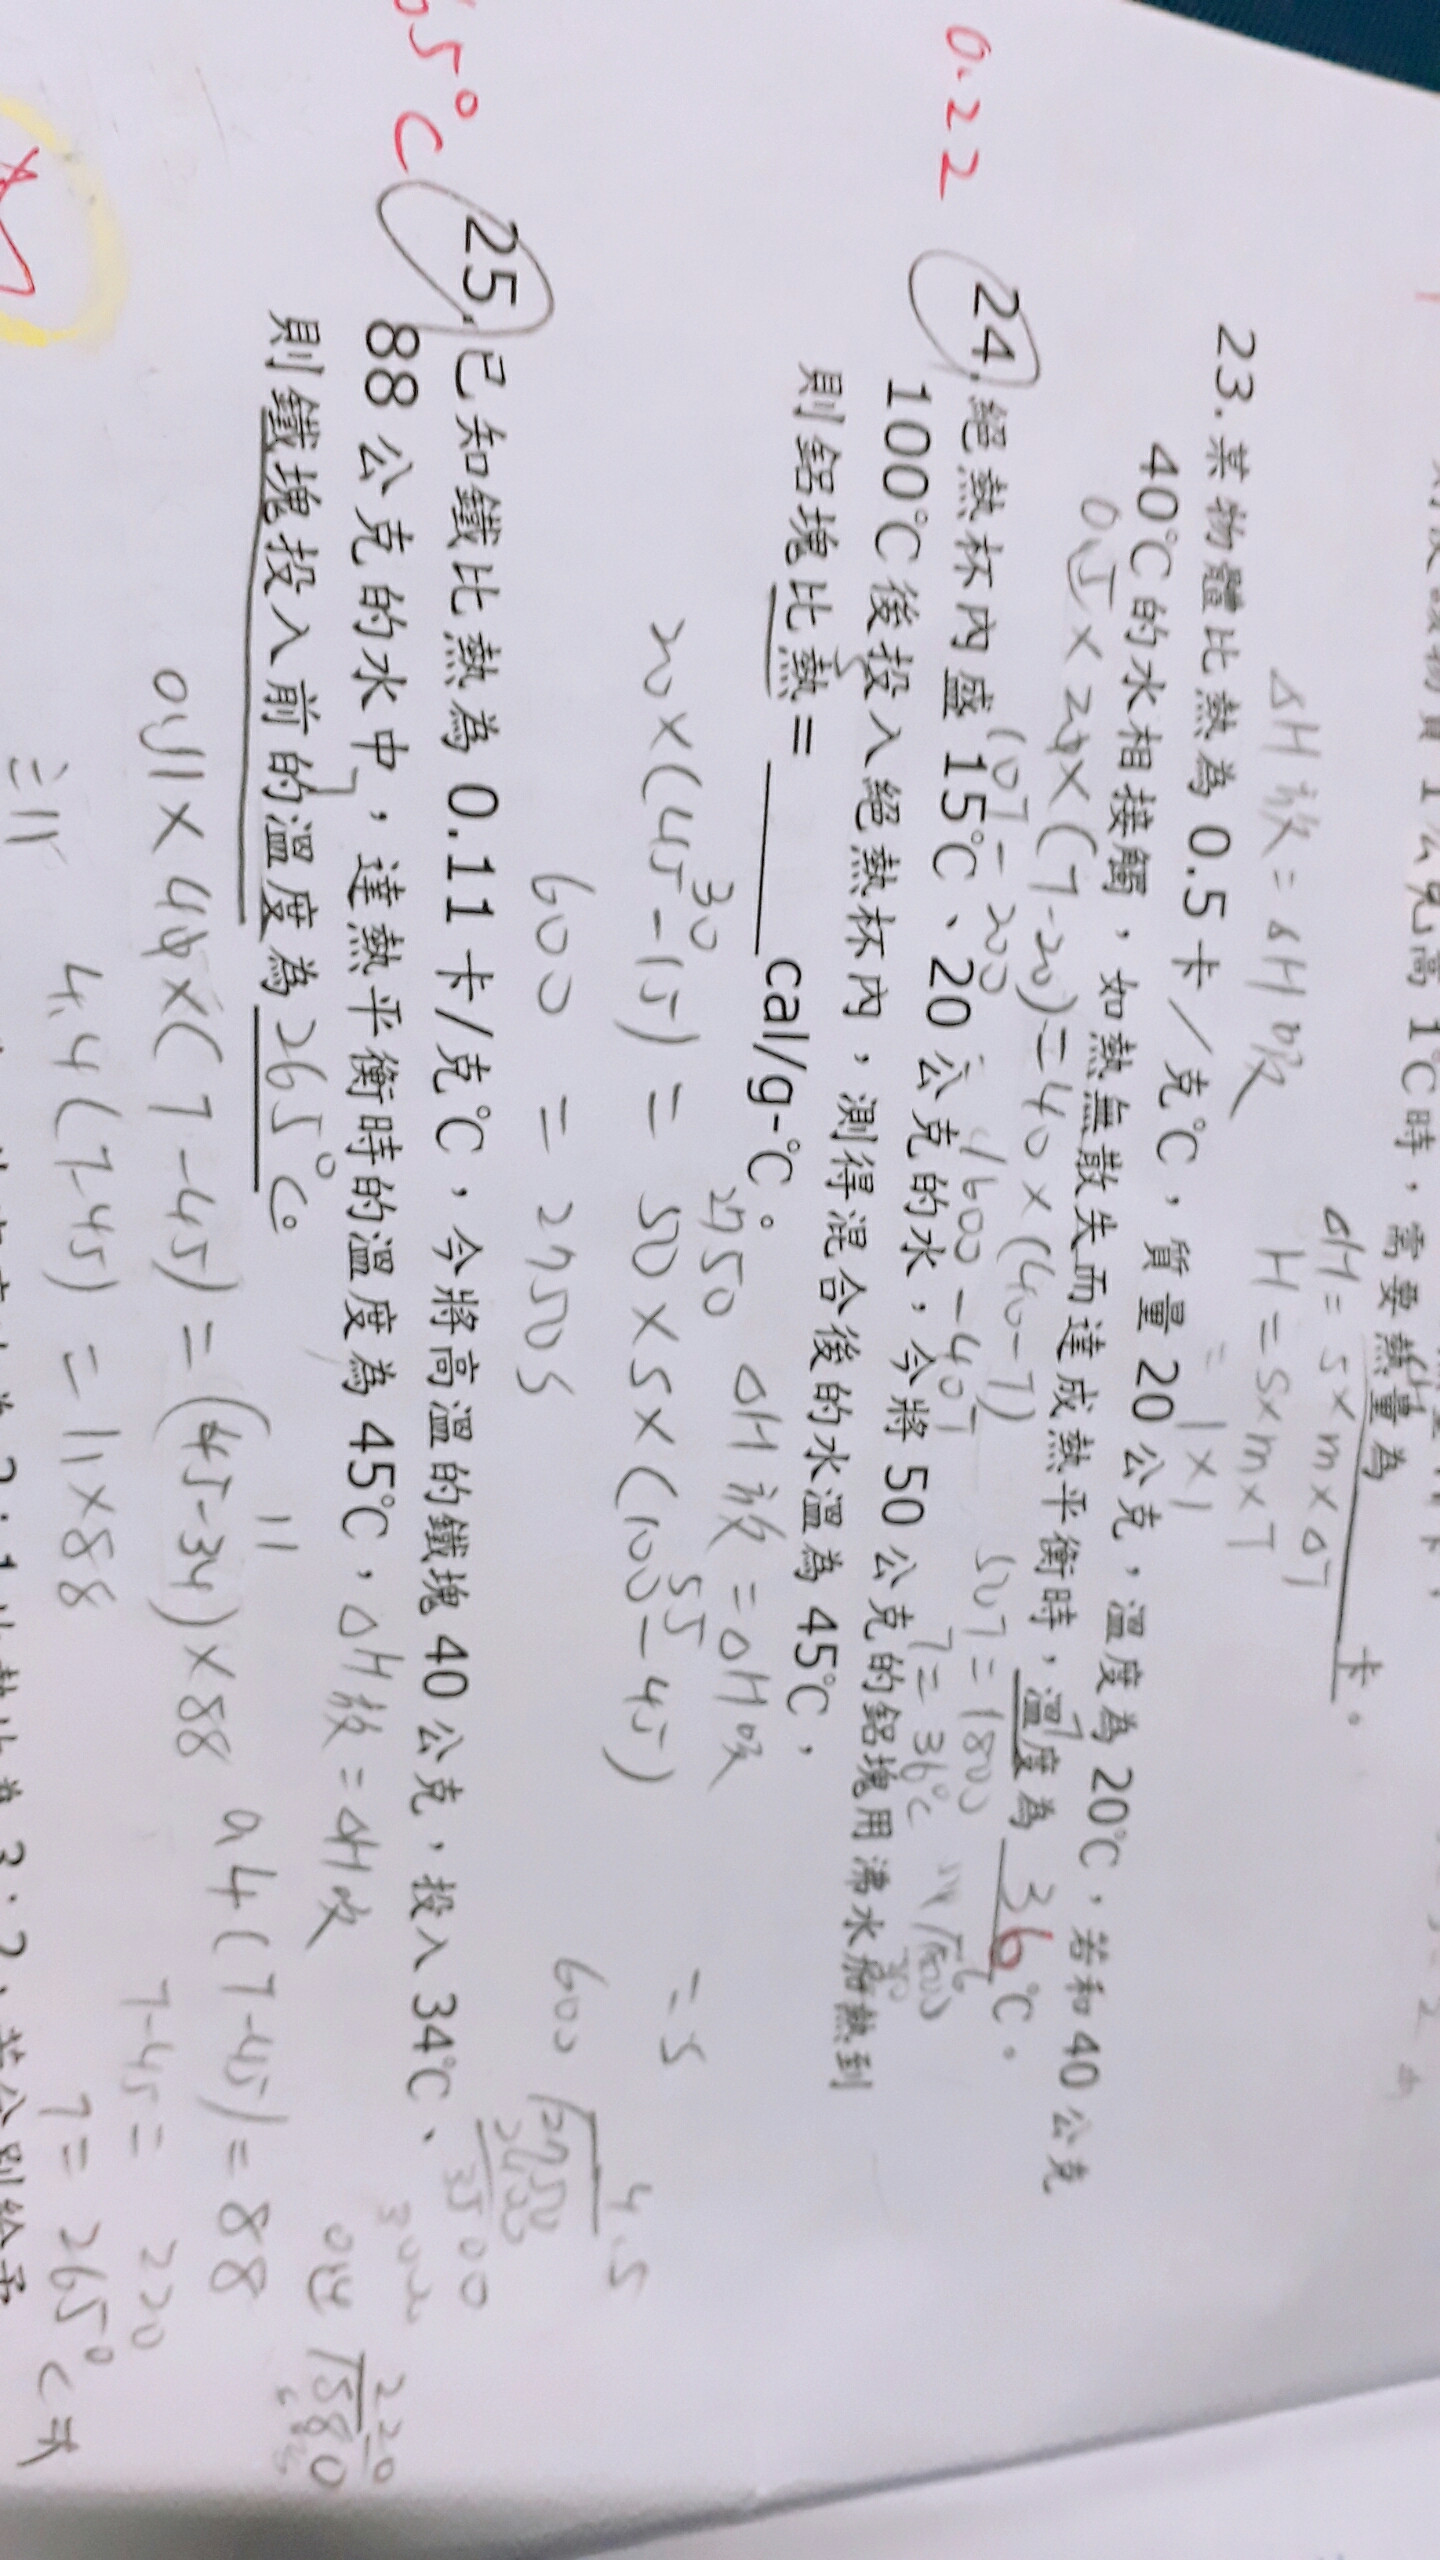 1公克高1℃時，需要熱量為______卡。
ΔH = S×m×ΔT
ΔH放 = ΔH吸
H = S×m×T
= 1×1
23.某物體比熱為 0.5卡／克℃，質量 20 公克，溫度為 20℃，若和 40 公克
40℃的水相接觸，如熱無散失而達成熱平衡時，溫度為 36 ℃。
0.5×20×(T-20)=40×(40-T)
10T-200=1600-40T
50T=1800
T=36℃
0.22
24.絕熱杯內盛 15℃、20 公克的水，今將 50 公克的鋁塊用沸水加熱到
100℃後投入絕熱杯內，測得混合後的水溫為 45℃，
則鋁塊比熱＝______cal/g-℃。
ΔH放=ΔH吸
30
2750
55
20×(45-15) = 50×S×(100-45)
=S
600 = 2750S
4.5
600
65℃
25.已知鐵比熱為 0.11 卡/克℃，今將高溫的鐵塊 40 公克，投入 34℃、
88 公克的水中，達熱平衡時的溫度為 45℃，
ΔH放=ΔH吸
則鐵塊投入前的溫度為 265℃。
11
0.11×40×(T-45) = (45-34)×88
4.4(T-45) = 11×88
0.4(T-45)=88
T-45= 220
T=265℃
220